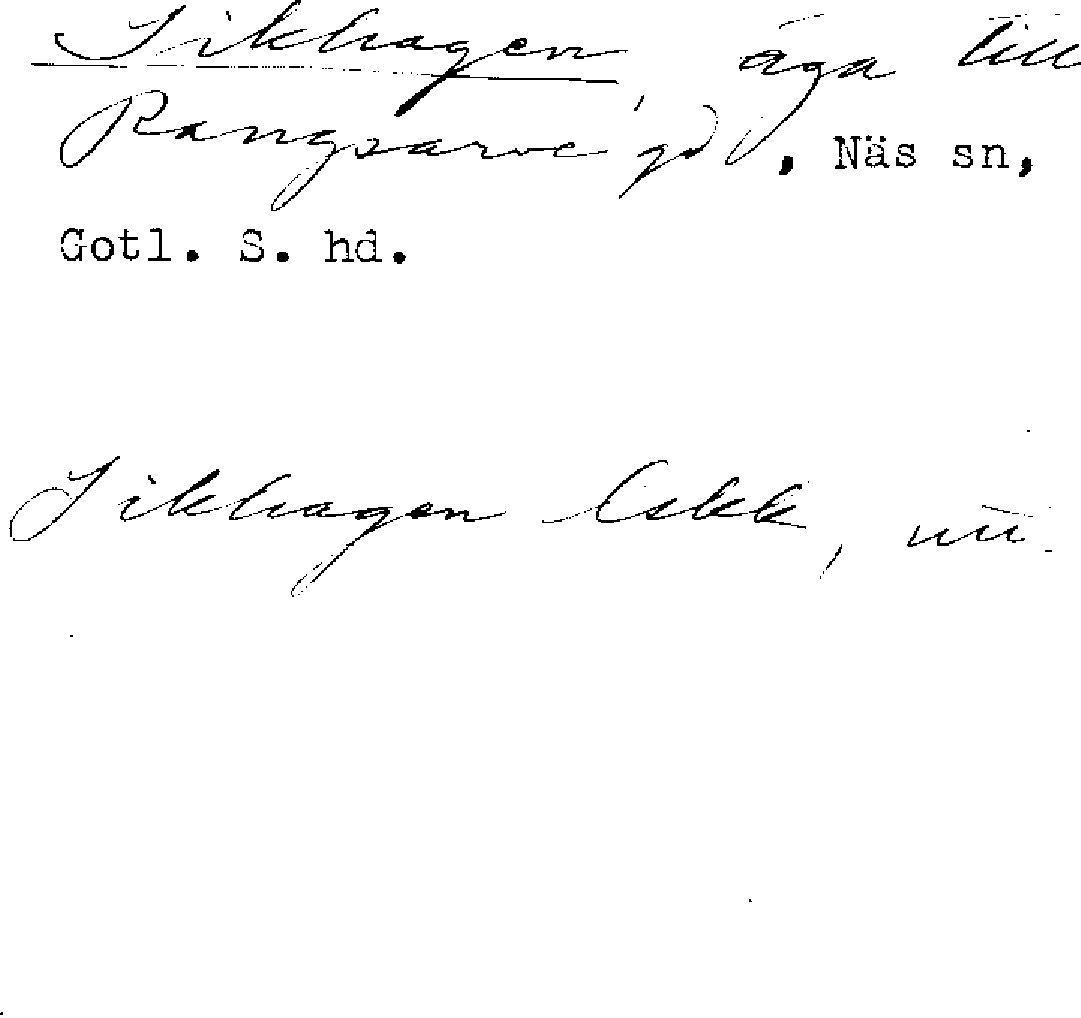 Sikhagen, äga till
Rangsarve gd, Näs sn,
Gotl. S. hd.
Sikhagen Eskk, nu.